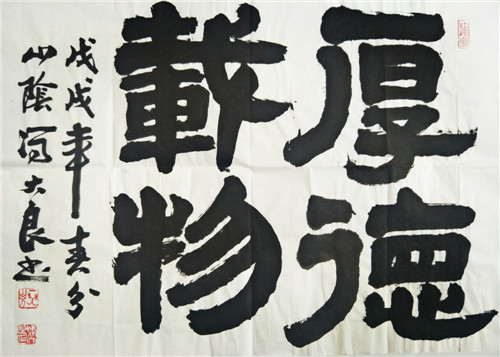 厚德
載物
戊戌年春分
山陰馮大良書